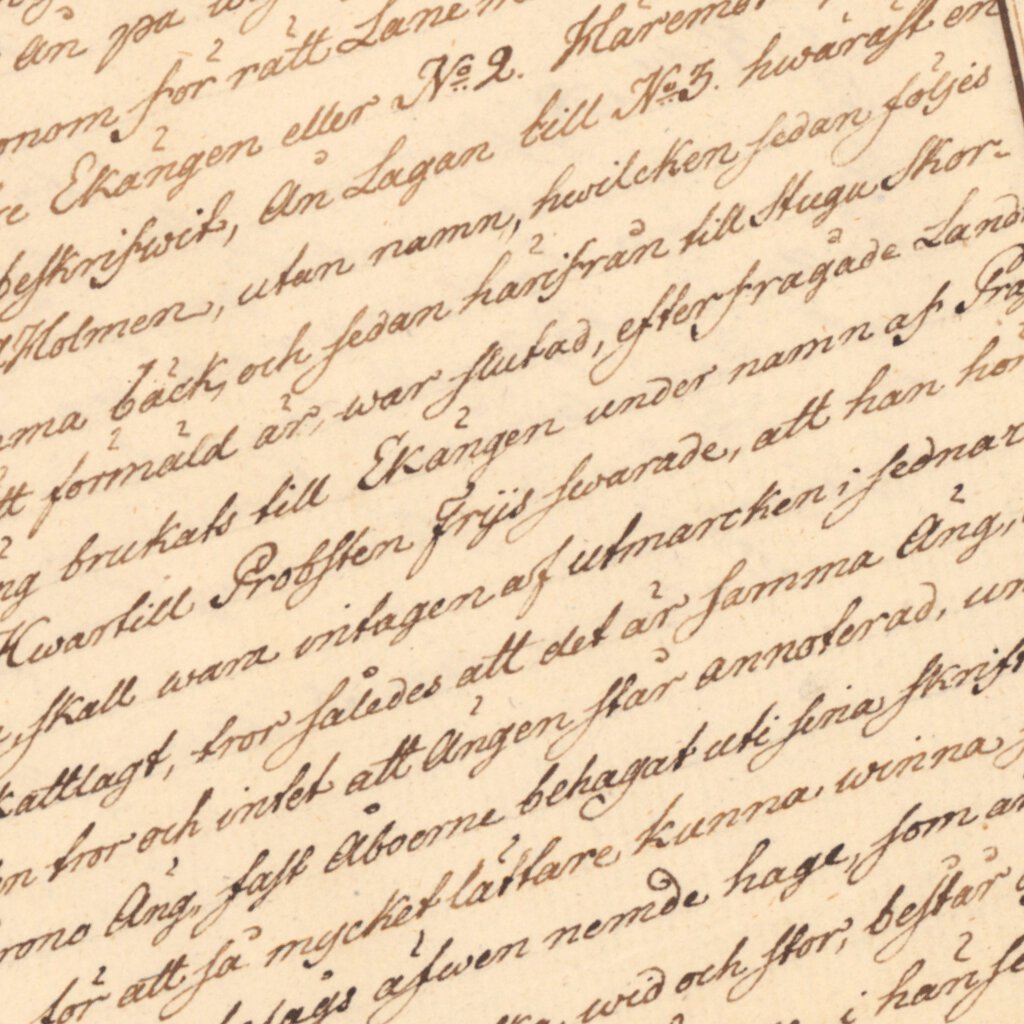 än på
onom för rätt Lane
re Ekängen eller No 2. Häremot
beskrifwit, än Lagan till No 3. hwaräst en
Holmen, utan namn, hwilcken sedan följes
ma bäck, och sedan härifrån till Stugu Skor-
tt förmäld är, war slutad, efterfrågade Land
ng brukats till Ekängen under namn af
Hwartill Probsten Frijs swarade, att han
skall wara intagen af utmarcken i sednar
kattlagt, tror således att det är samma Äng,
n tror och intet att Ängen står annoterad, un
rono Äng, fast Åboerne behagat uti sina skrift
för att så mycket lättare kunna winna
äfwen nemde hage, som
wid och stor, består
i hänse